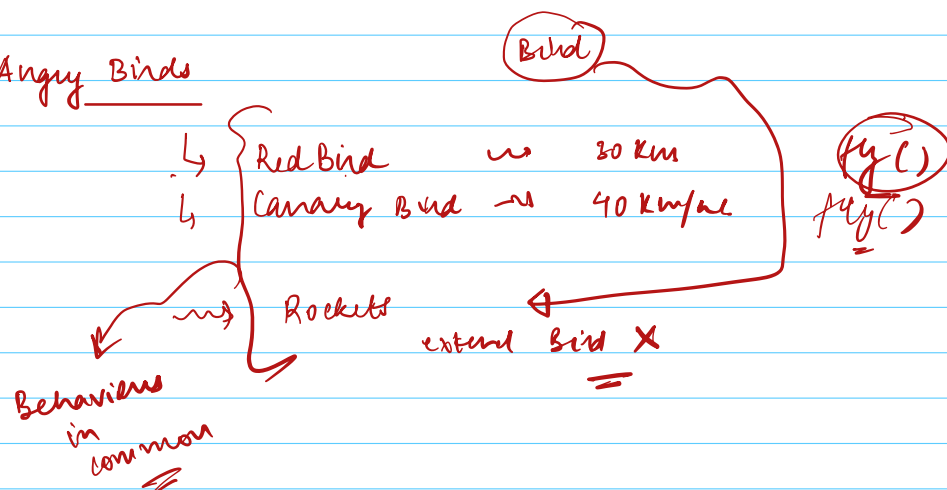 Bird
Angry Birds
RedBird 30 Km fly()
Canary Bird 40 Km/hr fly()
Rockets
extend Bird X
Behaviours
in
common